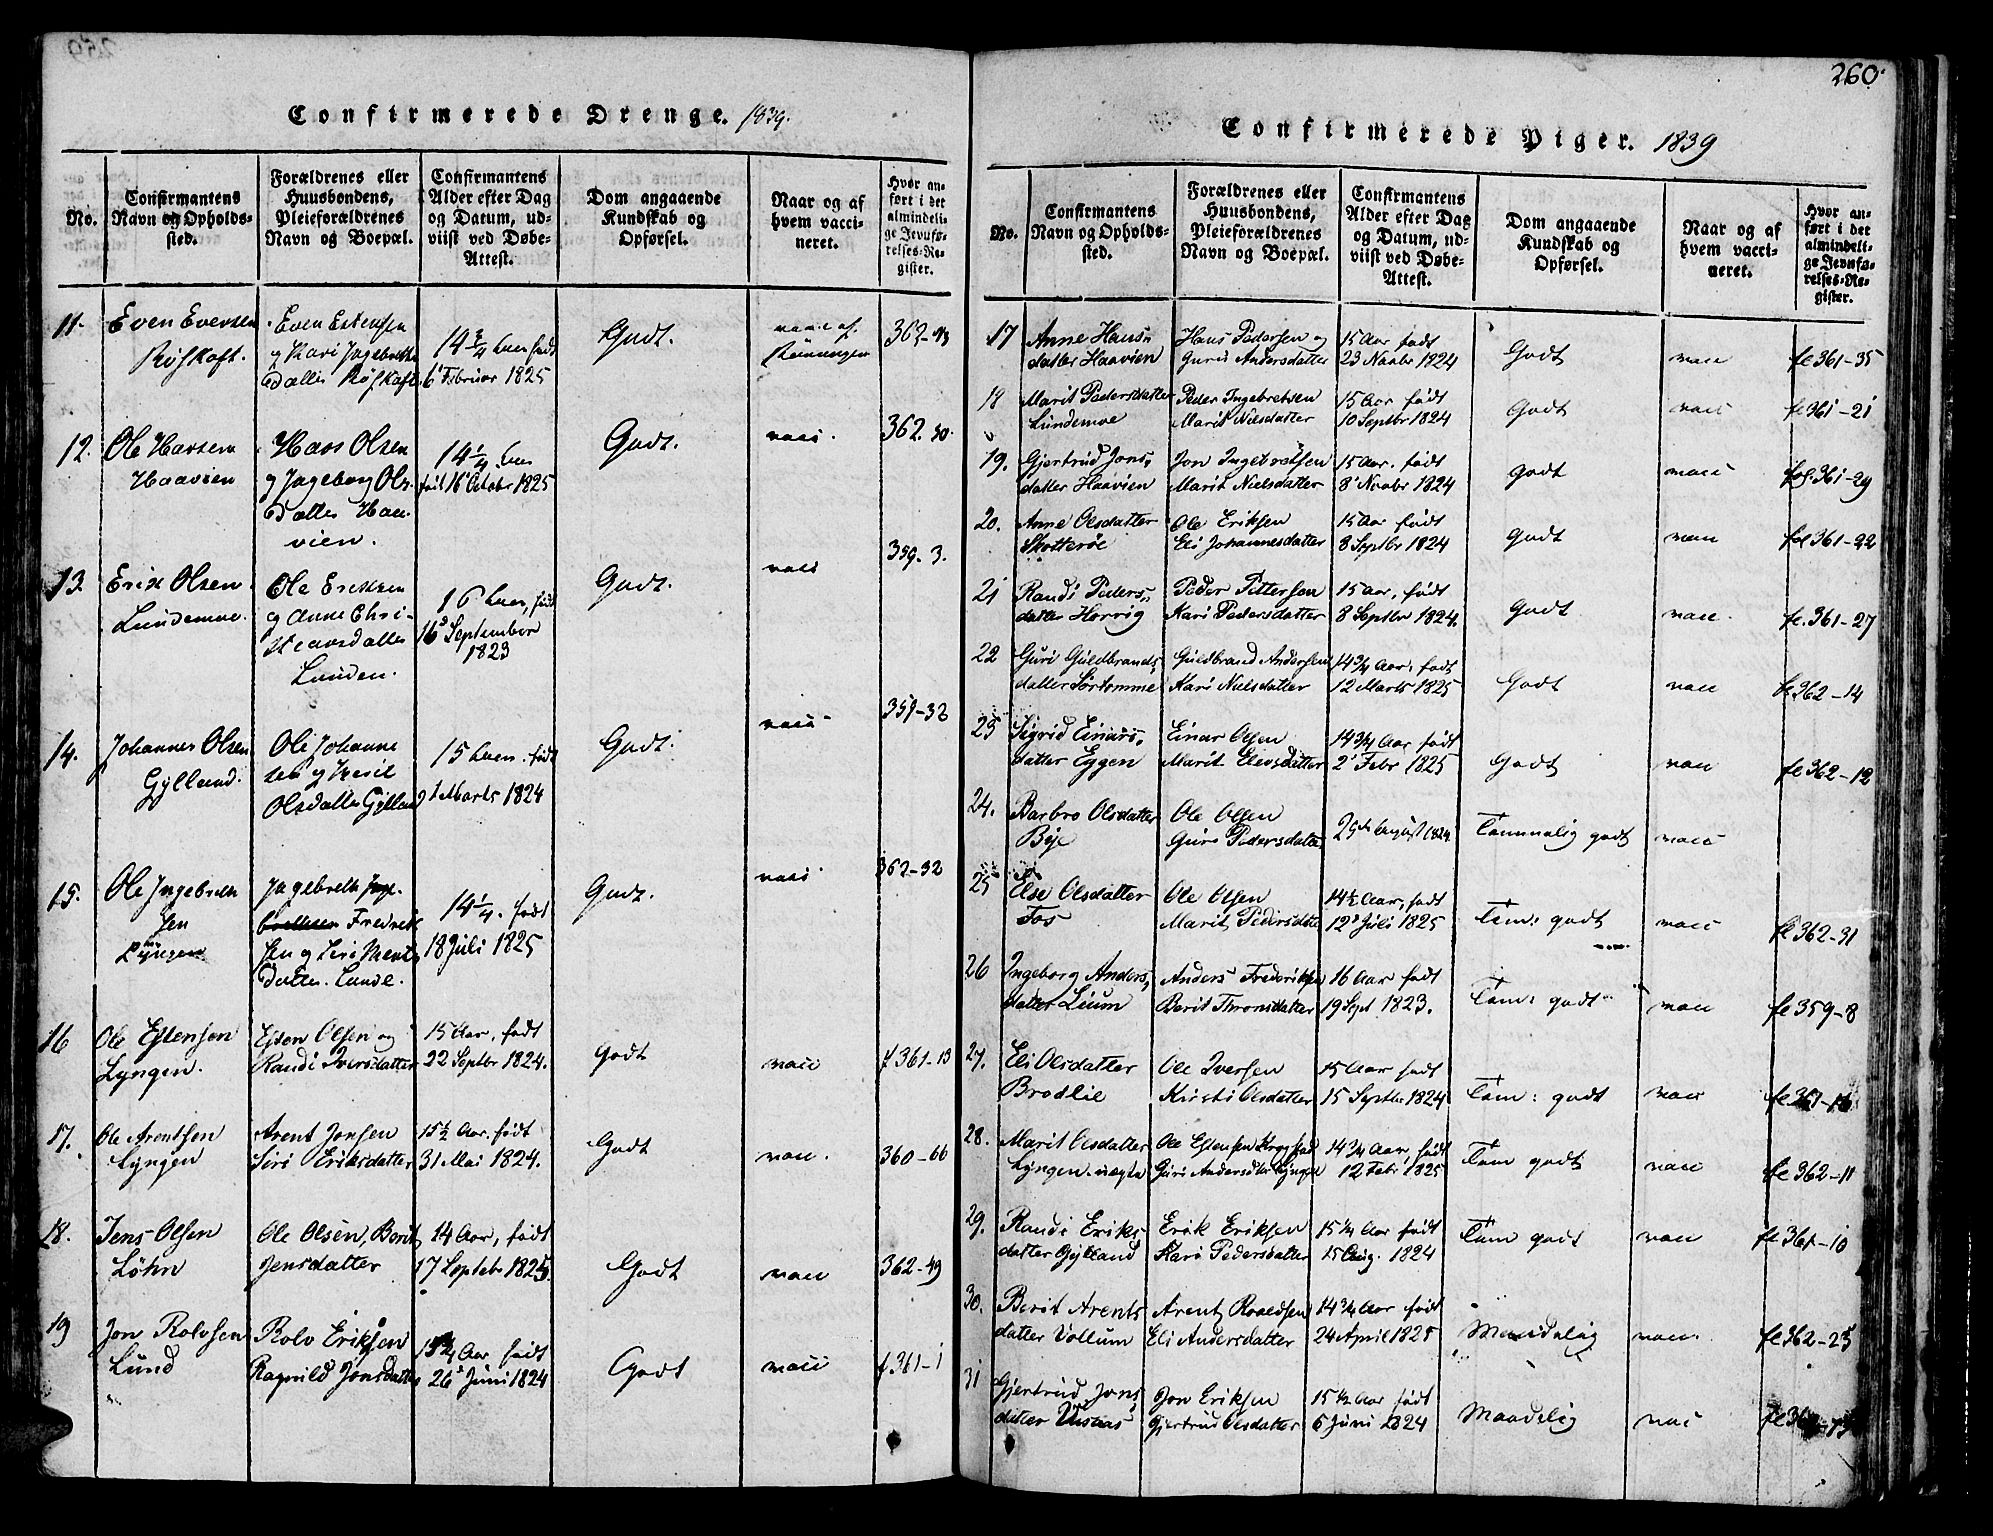 Confirmerede Drenge. 1839.
No.
Confirmantens
Navn og Opholds-
sted.
Forældrenes eller
Huusbondens,
Pleieforældrenes
Navn og Boepæl.
Confirmantens
Alder efter Dag
og Datum, ud-
viist ved Døbe-
Attest.
Dom angaaende
Kundskab og
Opførsel.
Naar og af
hvem vacci-
neret.
Hvor an-
ført i det
almindeli-
ge Jevnfø-
relses-Re-
gister.
11.
Even Evensen
Røskaft.
Even Estensen
og Kari Ingebrethsdatter Røskaft
14 3/4 Aar født
6' Februar 1825
Godt.
362-43
12.
Ole Hansen
Haavien
Hans Olsen
og Ingeborg Ols
datter Haa-
vien.
14 1/4 Aar
født 16' Octobr 1825
Godt.
vacc.
362. 50.
13.
Erik Olsen
Lundemoe.
Ole Eriksen
og Anne Chri-
stensdatter
Lunden.
16 Aar, født
16 September
1823
Godt.
vacc
359. 3.
14.
Johannes Olsen
Gylland.
Ole Johanne
sen og Berit
Olsdatter Gylland
15 Aar. født
1 Marts 1824
Godt.
vacc
359-32
15.
Ole Ingebreth
sen
Lyngen
Ingebreth
Fredrik
sen og Siri Bents
datter. Lunde.
14 1/4. født
18 Juli 1825
Godt.
vacc
362-32
16
Ole Estensen
Lyngen.
Esten Olsen og
Randi Iversdatter
15 Aar, født
22 Septbr 1824.
Godt
vacc
f 361-13
17.
Ole Arentsen
Lyngen
Arent Jonsen
Siri Eriksdatter
15 1/2 Aar. født
31 Mai 1824.
Godt
vacc.
360-66
18.
Jens Olsen
Løhn
Ole Olsen, Berit
Jensdatter
14 Aar, født
17 Septebr 1825.
Godt
vacc
362-49
19
Jon Rolvsen
Lund
Rolv Eriksen
Ragnild Jonsdatter
15 1/4 Aar født
26 Juni 1824
Godt
vacc
f. 361-1
260.
Confirmerede Piger. 1839
No.
Confirmantens
Navn og Opholds-
sted.
Forældrenes eller
Huusbondens,
Pleieforældrenes
Navn og Boepæl.
Confirmantens
Alder efter Dag
og Datum, ud-
viist ved Døbe-
Attest.
Dom angaaende
Kundskab og
Opførsel.
Naar og af
hvem vacci-
neret.
Hvor an-
ført i det
almindeli-
ge Jevnfø-
relses-Re-
gister.
17
Anne Hans-
datter Haavien
Hans Pedersen og
Guru Andersdatter
15 Aar født
23 Novbr 1824
Godt
vacc
fe 361-35
18
Marit Pedersdatter
Lundemoe
Peder Ingebretsen
Marit Nielsdatter
15 Aar født
10 Septbr 1824
Godt
vacc
fe 361-21
19.
Gjertrud Jons-
datter Haavien
Jon Ingebretsen
Marit Nielsdatter
15 Aar. født
8' Novbr 1824
Godt
vacc
fol. 361-29
20.
Anne Olsdatter
Skotterøe
Ole Eriksen
Eli Johannesdatter
15 Aar født
8 Septbr 1824
Godt
vacc
fol 361-22
21
Randi Peders-
datter Horrig
Peder Pettersen
Kari Pedersdatter
15 Aar, født
8 Septbr 1824.
Godt
vacc.
fe. 361-27
22
Guri Guldbrands
datter Sørtømme
Guldbrand Andersen
Kari Nielsdatter
14 3/4 Aar, født
12 Marts 1825
Godt
vacc
fe. 362-14
23
Sigrid Einars-
datter Eggen
Einar Olsen
Marit Elevsdatter
14 3/4 Aar født
2' Febr 1825
Godt
vacc
fe 362-12
24.
Barbro Olsdatter
Bye
Ole Olsen
Guri Pedersdatter
29de August 1824
Tammelig godt
vacc
25
Else Olsdatter
Fos
Ole Olsen
Marit Pedersdatter
14 1/2 Aar, født
12' Juli 1825
Tam: godt
vacc
fe 362-31
26
Ingeborg Anders-
datter Lium
Anders Frederiksen
Berit Thronsdatter
16 Aar født
19 Sept 1823.
Tam: godt
vacc
fe 359-8
27.
Eli Olsdatter
Brodlie
Ole Iversen
Kirsti Olsdatter
15 Aar født
15 Septbr 1824
Tam: godt
vacc
fe 361-16
28.
Marit Olsdatter
Lyngen
Ole Estensen Krogstad
Guri Andersdtter Lyngen
14 3/4 Aar, født
12 Febr 1825
Tam godt
vacc
fe 362-11
29.
Randi Eriks
datter Gylland
Erik Eriksen
Kari Pedersdatter
15 1/4 Aar født
15 Aug. 1824
Tam godt
vacc
fe 361-10
30.
Berit Arents
datter Vollum
Arent Roaldsen
Eli Andersdatter
14 3/4 Aar født
24 April 1825
Maadelig
vacc.
fe 362-25
31
Gjertrud Jons-
datter Ussaas
Jon Eriksen
Gjertrud Olsdatter
15 1/2 Aar født
6 Juni 1824
Maadelig
vacc